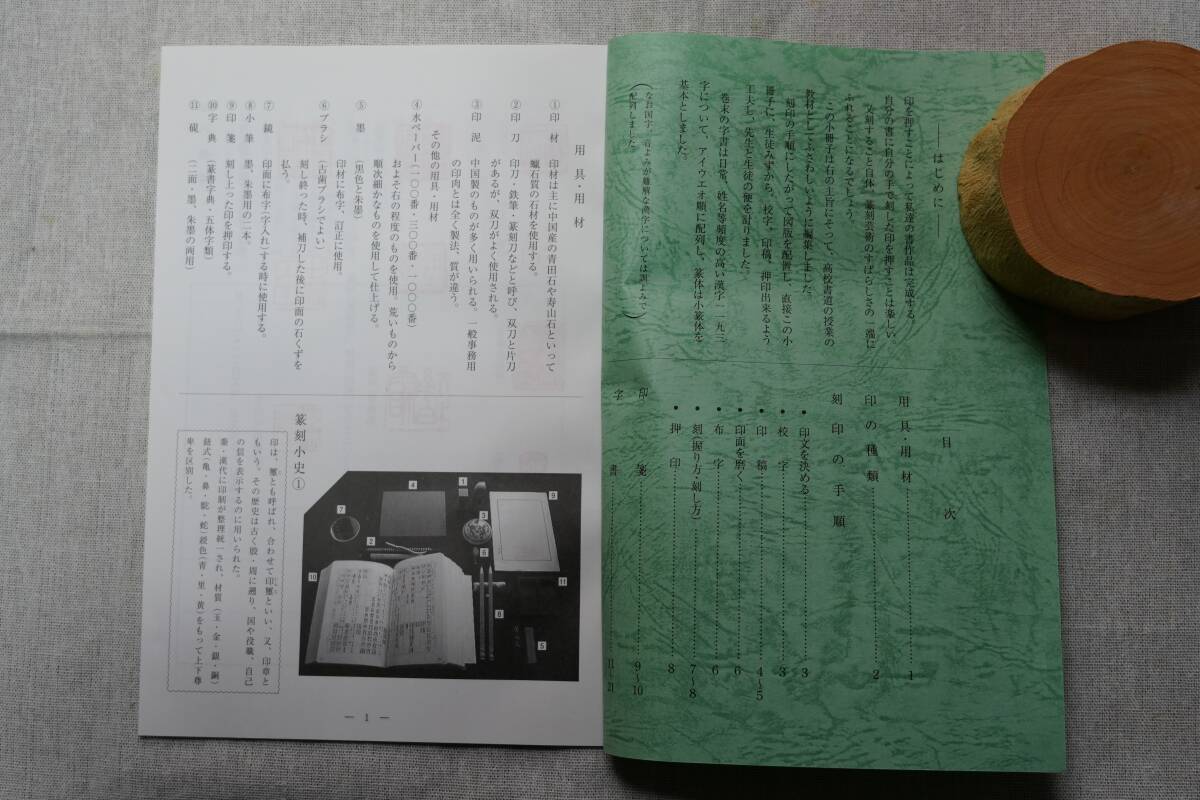 ――はじめに――
印を押すことによって私達の書作品は完成する。
自分の書に自分の手で刻した印を押すことは楽しい。
又刻すること自体、篆刻芸術のすばらしさの一端に
ふれることになるでしょう。
この小冊子は右の主旨にそって、高校書道の授業の
教材としてふさわしいように編集しました。
刻印の手順にしたがって図版を配置し、直接この小
冊子に、生徒みずから、校字、印稿、押印出来るよう
工夫し、先生と生徒の便を計りました。
巻末の字書は日常、姓名等頻度の高い漢字一一九三
字について、アイウエオ順に配列し、篆体は小篆体を
基本としました。
(なお国字、音よみが難解な漢字については訓よみで
配列しました。)
目次
用具・用材 1
印の種類 2
刻印の手順
• 印文を決める 3
• 校字 3
• 印稿 4～5
• 印面を磨く 6
• 布字 6
• 刻(握り方・刻し方) 7～8
• 押印 8
印箋 9～10
字書 11～21
用具・用材
① 印材 印材は主に中国産の青田石や寿山石といって
蠟石質の石材を使用する。
② 印刀 印刀・鉄筆・篆刻刀などと呼び、双刀と片刀
があるが、双刀がよく使用される。
③ 印泥 中国製のものが多く用いられる。一般事務用
の印肉とは全く製法、質が違う。
その他の用具・用材
④ 水ペーパー(一〇〇番・三〇〇番・一〇〇〇番)
およそ右の程度のものを使用。荒いものから
順次細かなものを使用して仕上げる。
⑤ 墨 (黒色と朱墨)
印材に布字、訂正に使用。
⑥ ブラシ (古歯ブラシでよい)
刻し終った時、補刀した後に印面の石くずを
払う。
⑦ 鏡 印面に布字(字入れ)する時に使用する。
⑧ 小筆 墨、朱墨用の二本。
⑨ 印箋 刻し上った印を押印する。
⑩ 字典 (篆書字典・五体字類)
⑪ 硯 (二面・墨、朱墨の両用)
篆刻小史①
印は、璽とも呼ばれ、合わせて印璽といい、又、印章と
もいう。その歴史は古く殷・周に遡り、国や役職、自己
の信を表示するのに用いられた。
秦・漢代に印制が整理統一され、材質(玉・金・銀・銅)
鈕式(亀・鼻・駝・蛇)綬色(青・里・黄)をもって上下尊
卑を区別した。
1
2
3
4
5
6
7
8
9
10
11
― 1 ―